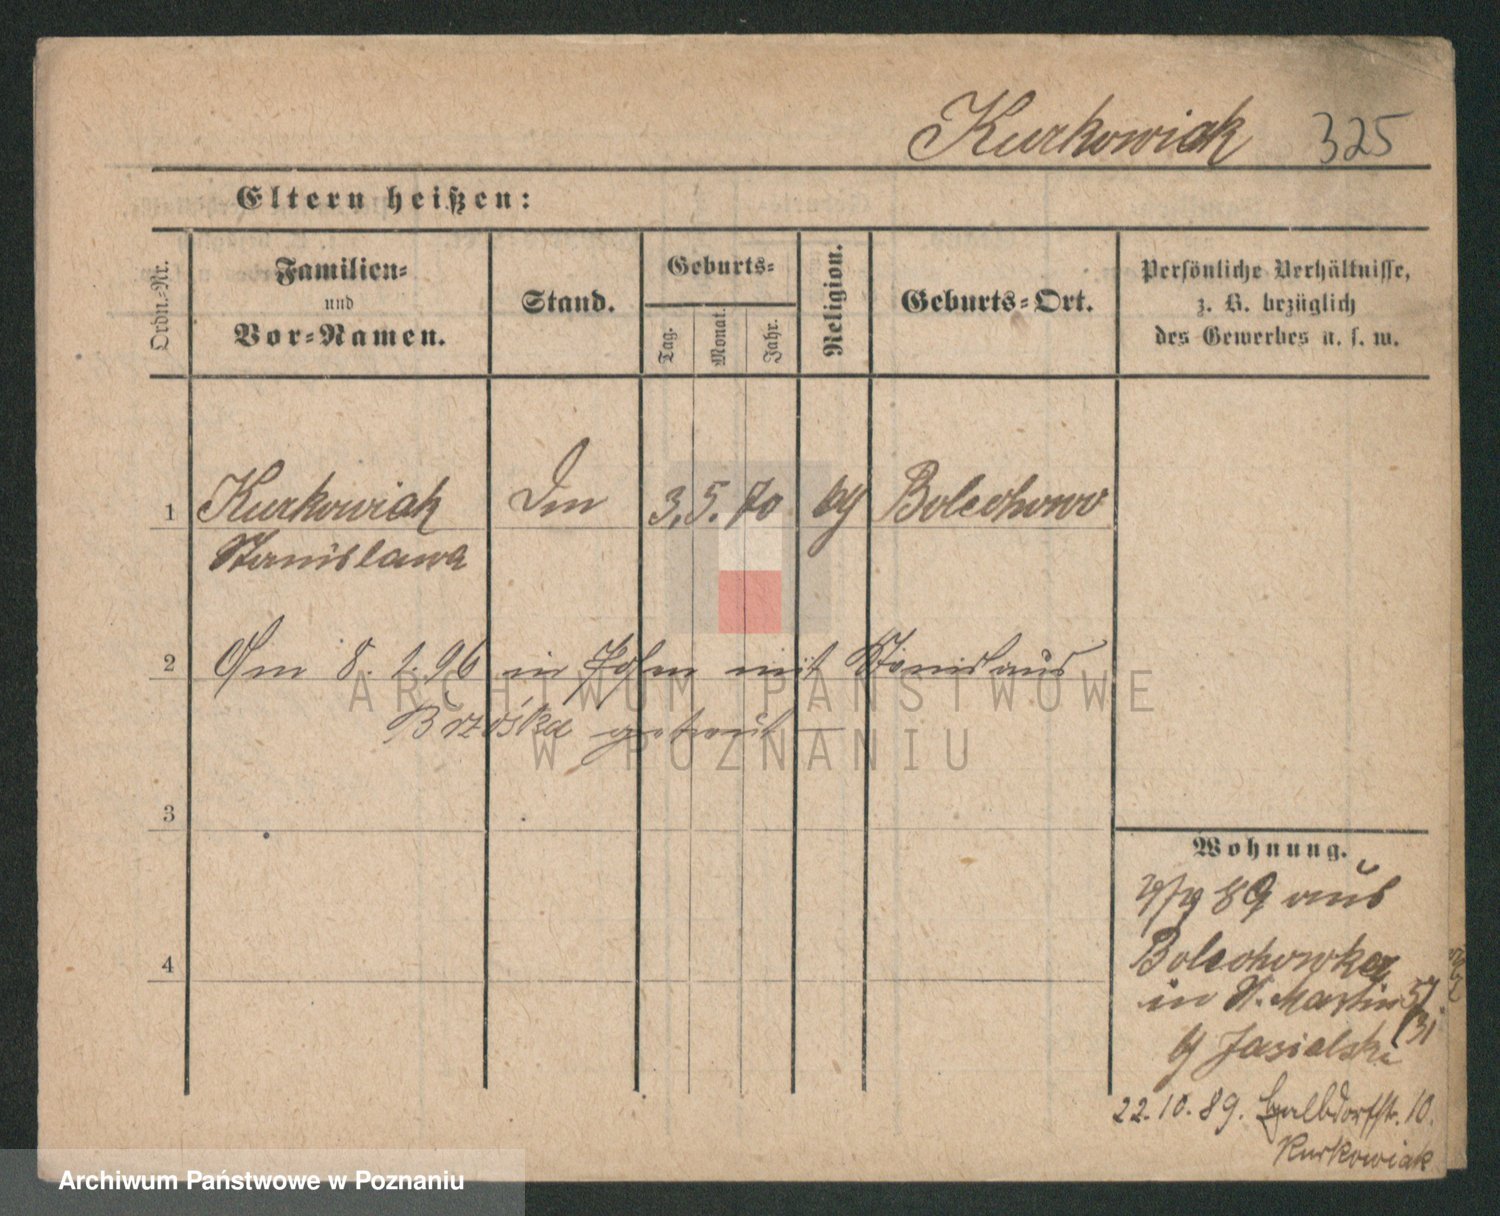 Kurkowiak 325
Eltern heißen:
Ordn.-Nr.
Familien-
und
Vor-Namen.
Stand.
Geburts-
Tag.
Monat.
Jahr.
Religion.
Geburts-Ort.
Persönliche Verhältnisse,
z. B. bezüglich
des Gewerbes u. s. w.
1 Kurkowiak 3. 5. 70 Bolechowo
Stanislawa
2 Am 8. 1. 96 in Posen mit Stanislaus
Brzóska getraut
3
4
Wohnung.
89 aus
Bolechowko
in St. Martin 57
Jasialski
22. 10. 89. Halbdorfstr. 10.
Kurkowiak
ARCHIWUM PAŃSTWOWE
W POZNANIU
Archiwum Państwowe w Poznaniu